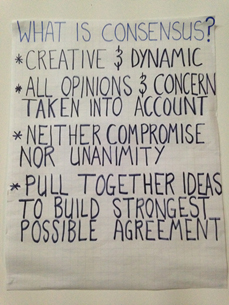 WHAT IS CONSENSUS?
* CREATIVE & DYNAMIC
* ALL OPINIONS & CONCERN
TAKEN INTO ACCOUNT
* NEITHER COMPROMISE
NOR UNANIMITY
* PULL TOGETHER IDEAS
TO BUILD STRONGEST
POSSIBLE AGREEMENT